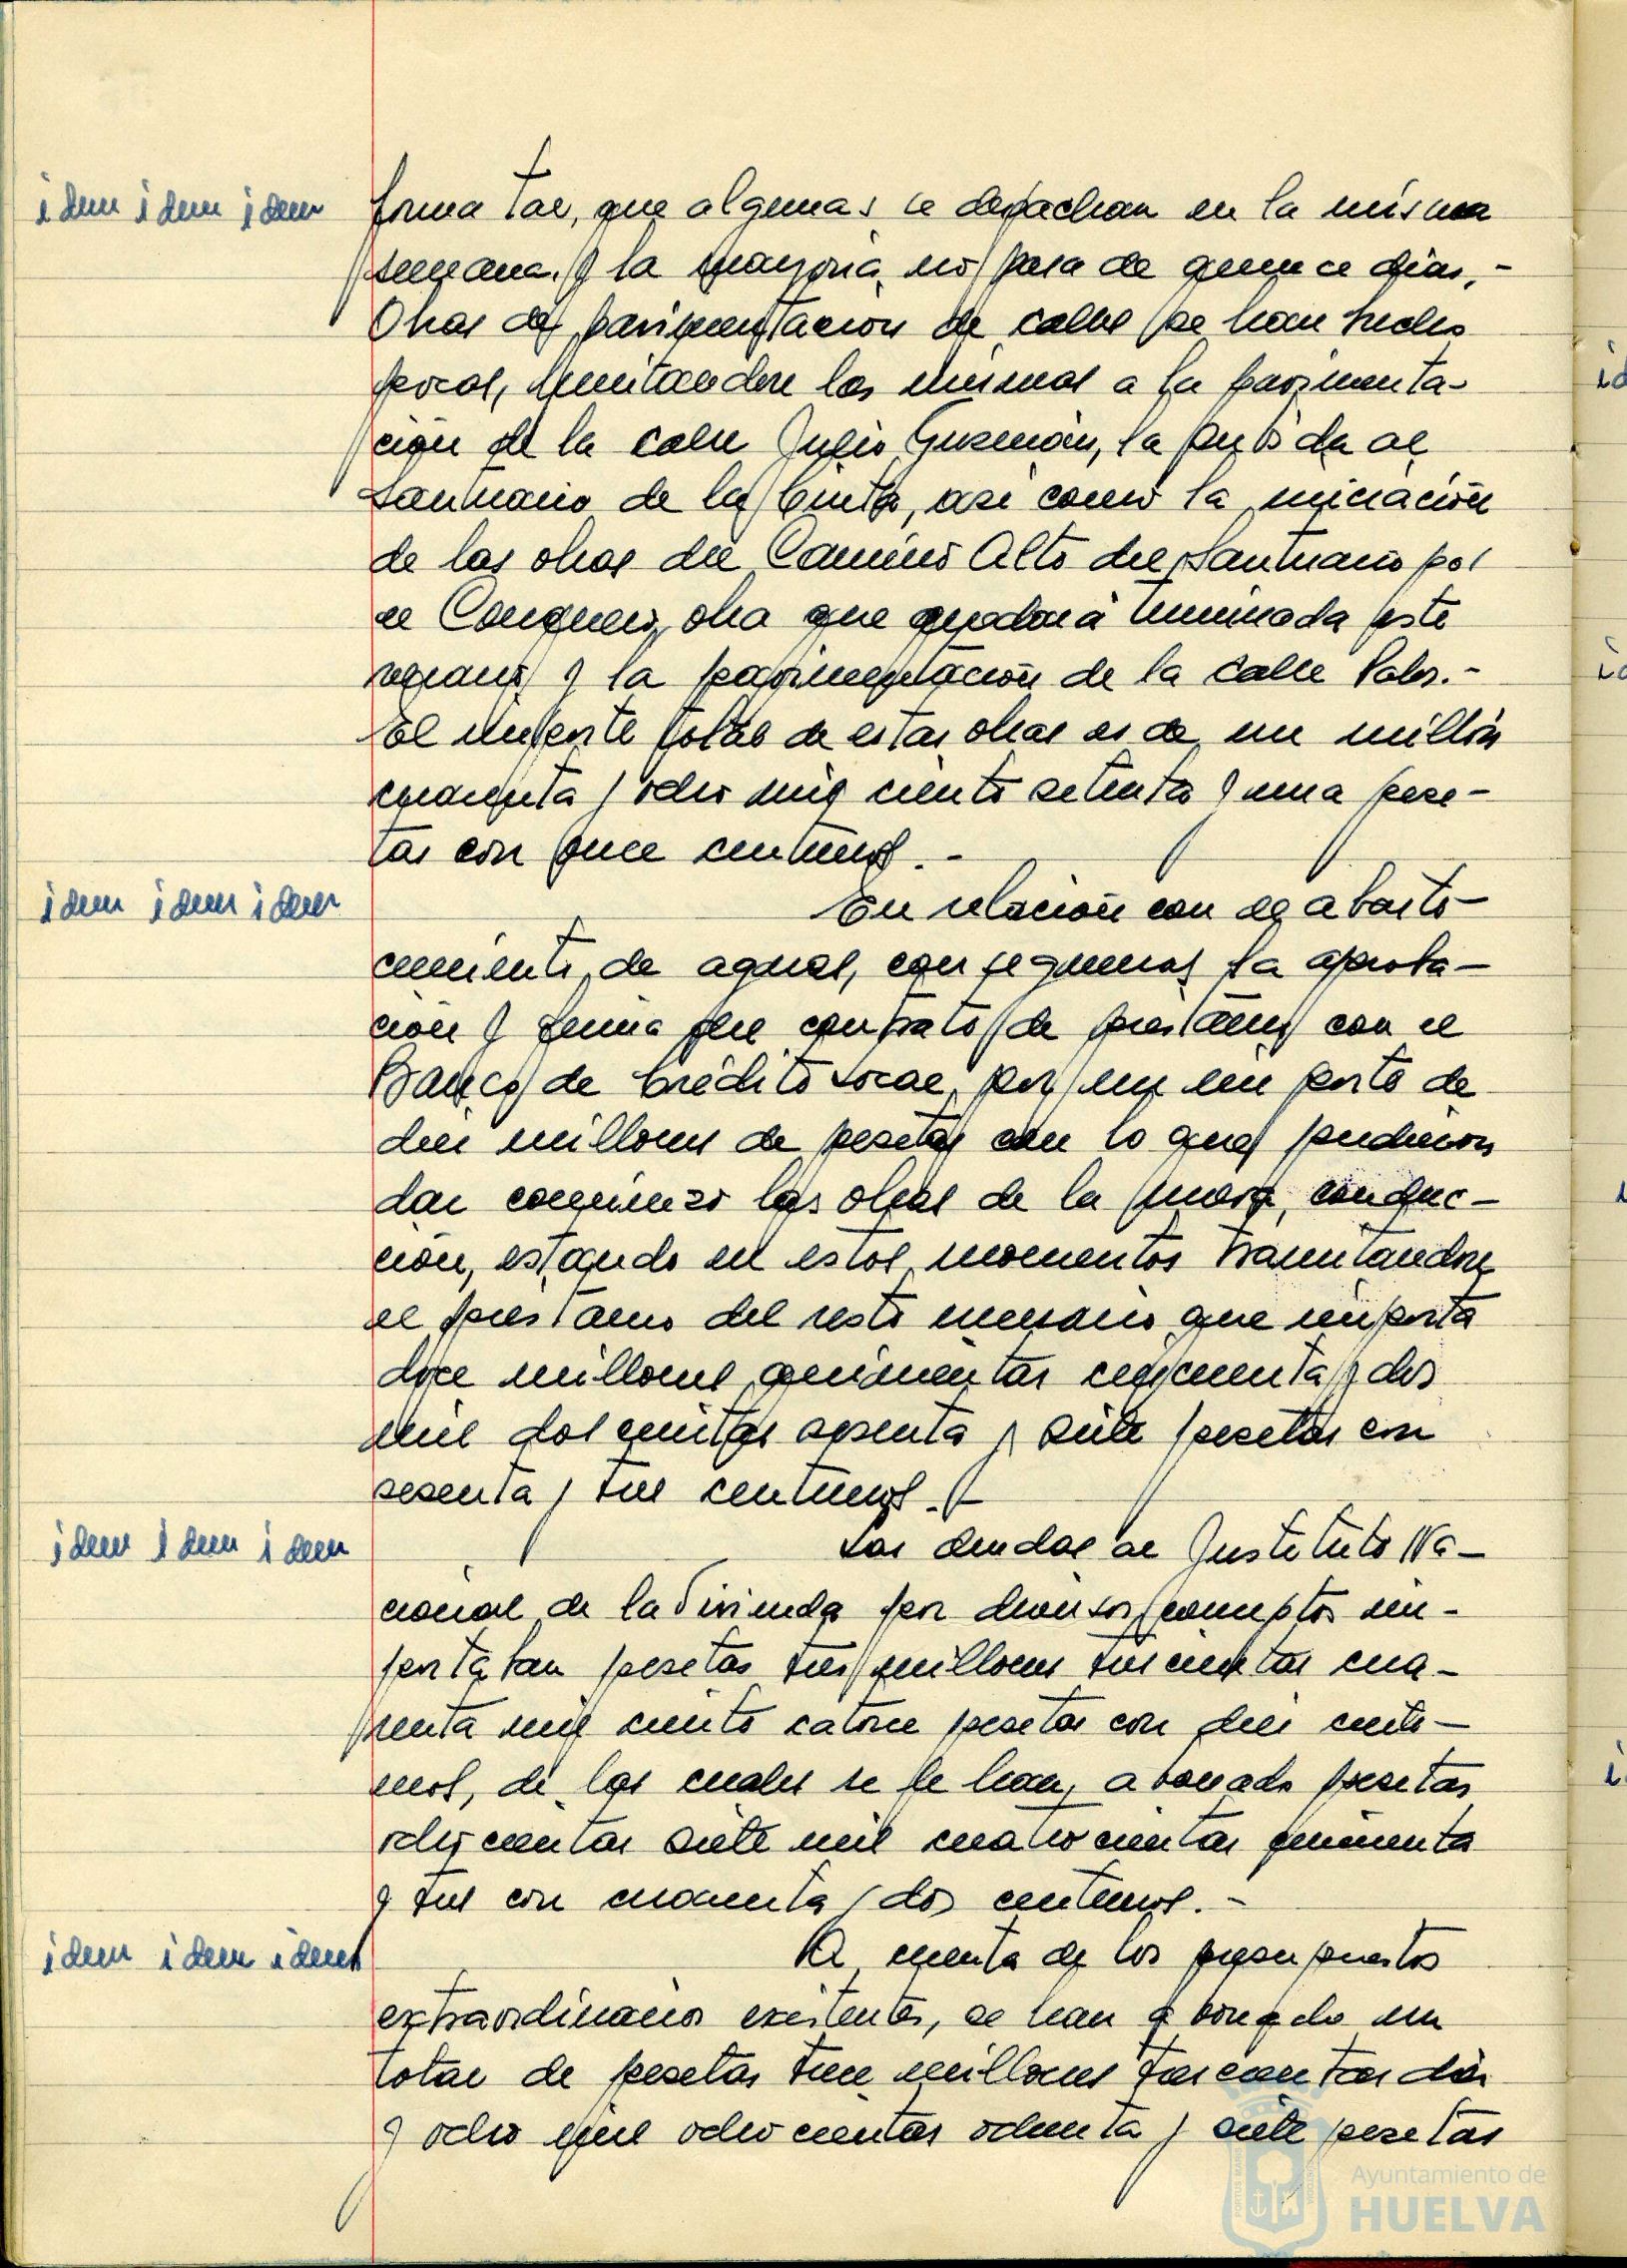 idem idem idem
forma tal, que algunas se despachan en la misma
semana y la mayoría no pasa de quince días.-
Obras de pavimentación de calles se han hecho
pocas, limitandose las mismas a la pavimenta-
ción de la calle Julio Guzmán, la subida al
Santuario de la Cinta, así como la iniciación
de las obras del Camino Alto del Santuario por
el Conquero, obra que quedará terminada este
verano y la pavimentación de la calle Palos.-
El importe total de estas obras es de un millón
cuarenta y ocho mil ciento setenta y una pese-
tas con once centimos.-
idem idem idem
En relación con el abaste-
cimiento de aguas, conseguimos la aproba-
ción y firma del contrato de prestamo con el
Banco de Crédito Local, por un importe de
diez millones de pesetas con lo que pudieron
dar comienzo las obras de la nueva conduc-
ción, estando en estos momentos tramitandose
el prestamo del resto necesario que importa
doce millones quinientas cincuenta y dos
mil doscientas sesenta y siete pesetas con
sesenta y tres centimos.-
idem idem idem
Las deudas al Instituto Na-
cional de la Vivienda por diversos conceptos im-
portaban pesetas tres millones trescientas cua-
renta mil ciento catorce pesetas con diez centi-
mos, de las cuales se le han abonado pesetas
ochocientas siete mil cuatrocientas
y tres con cuarenta y dos centimos.-
idem idem idem
A cuenta de los presupuestos
extraordinarios existentes, se han abonado un
total de pesetas trece millones trescientas diez
y ocho mil ochocientas ochenta y siete pesetas
Ayuntamiento de
HUELVA